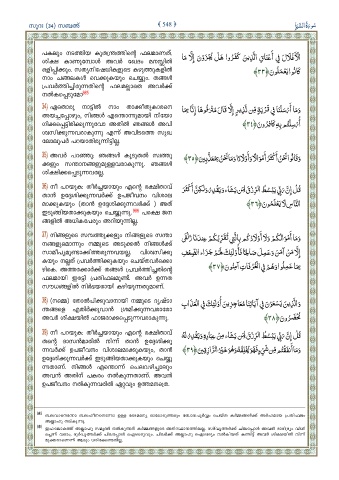 സൂറ (34) സബഅ് 548 سُورَةُ سَبَإٍ
പകലും നടത്തിയ കുതന്ത്രത്തിന്റെ ഫലമാണത്.
ശിക്ഷ കാണുമ്പോൾ അവർ ഖേദം മനസ്സിൽ
ഒളിപ്പിക്കും. സത്യനിഷേധികളുടെ കഴുത്തുകളിൽ
നാം ചങ്ങലകൾ വെക്കുകയും ചെയ്യും. തങ്ങൾ
പ്രവർത്തിച്ചിരുന്നതിന്റെ ഫലമല്ലാതെ അവർക്ക്
നൽകപ്പെടുമോ
الْأَغْلَالَ فِي أَعْنَاقِ الَّذِينَ كَفَرُوا هَلْ يُجْزَوْنَ إِلَّا مَا
كَانُوا يَعْمَلُونَ ﴿٣٣﴾
34) ഏതൊരു നാട്ടിൽ നാം താക്കീതുകാരനെ
അയച്ചപ്പോഴും, നിങ്ങൾ എന്തൊന്നുമായി നിയോ
ഗിക്കപ്പെട്ടിരിക്കുന്നുവോ അതിൽ ഞങ്ങൾ അവി
ശ്വസിക്കുന്നവരാകുന്നു എന്ന് അവിടത്തെ സുഖ
ലോലുപർ പറയാതിരുന്നിട്ടില്ല.
وَمَا أَرْسَلْنَا فِي قَرْيَةٍ مِّن نَّذِيرٍ إِلَّا قَالَ مُتْرَفُوهَا إِنَّا بِمَا
أُرْسِلْتُم بِهِ كَافِرُونَ ﴿٣٤﴾
35) അവർ പറഞ്ഞു: ഞങ്ങൾ കൂടുതൽ സ്വത്തു
ക്കളും സന്താനങ്ങളുമുള്ളവരാകുന്നു. ഞങ്ങൾ
ശിക്ഷിക്കപ്പെടുന്നവരല്ല.
وَقَالُوا نَحْنُ أَكْثَرُ أَمْوَالًا وَأَوْلَادًا وَمَا نَحْنُ بِمُعَذَّبِينَ ﴿٣٥﴾
36) നീ പറയുക: തീർച്ചയായും എന്റെ രക്ഷിതാവ്
താൻ ഉദ്ദേശിക്കുന്നവർക്ക് ഉപജീവനം വിശാല
മാക്കുകയും (താൻ ഉദ്ദേശിക്കുന്നവർക്ക് ) അത്
ഇടുങ്ങിയതാക്കുകയും ചെയ്യുന്നു. പക്ഷെ ജന
ങ്ങളിൽ അധികപേരും അറിയുന്നില്ല.
قُلْ إِنَّ رَبِّي يَبْسُطُ الرِّزْقَ لِمَن يَشَاءُ وَيَقْدِرُ وَلَٰكِنَّ أَكْثَرَ
النَّاسِ لَا يَعْلَمُونَ ﴿٣٦﴾
37) നിങ്ങളുടെ സമ്പത്തുക്കളും നിങ്ങളുടെ സന്താ
നങ്ങളുമൊന്നും നമ്മുടെ അടുക്കൽ നിങ്ങൾക്ക്
സാമീപ്യമുണ്ടാക്കിത്തരുന്നവയല്ല. വിശ്വസിക്കു
കയും നല്ലത് പ്രവർത്തിക്കുകയും ചെയ്തവർക്കൊ
ഴികെ. അത്തരക്കാർക്ക് തങ്ങൾ പ്രവർത്തിച്ചതിന്റെ
ഫലമായി ഇരട്ടി പ്രതിഫലമുണ്ട്. അവർ ഉന്നത
സൗധങ്ങളിൽ നിർഭയരായി കഴിയുന്നതുമാണ്.
وَمَا أَمْوَالُكُمْ وَلَا أَوْلَادُكُم بِالَّتِي تُقَرِّبُكُمْ عِندَنَا زُلْفَىٰ
إِلَّا مَنْ آمَنَ وَعَمِلَ صَالِحًا فَأُولَٰئِكَ لَهُمْ جَزَاءُ الضِّعْفِ
بِمَا عَمِلُوا وَهُمْ فِي الْغُرُفَاتِ آمِنُونَ ﴿٣٧﴾
38) (നമ്മെ) തോൽപിക്കുവാനായി നമ്മുടെ ദൃഷ്ടാ
ന്തങ്ങളെ എതിർക്കുവാൻ ശ്രമിക്കുന്നവരാരോ
അവർ ശിക്ഷയിൽ ഹാജരാക്കപ്പെടുന്നവരാകുന്നു.
وَالَّذِينَ يَسْعَوْنَ فِي آيَاتِنَا مُعَاجِزِينَ أُولَٰئِكَ فِي الْعَذَابِ
مُحْضَرُونَ ﴿٣٨﴾
39) നീ പറയുക: തീർച്ചയായും എന്റെ രക്ഷിതാവ്
തന്റെ ദാസൻമാരിൽ നിന്ന് താൻ ഉദ്ദേശിക്കു
ന്നവർക്ക് ഉപജീവനം വിശാലമാക്കുകയും, താൻ
ഉദ്ദേശിക്കുന്നവർക്ക് ഇടുങ്ങിയതാക്കുകയും ചെയ്യു
ന്നതാണ്. നിങ്ങൾ എന്തൊന്ന് ചെലവഴിച്ചാലും
അവൻ അതിന് പകരം നൽകുന്നതാണ്. അവൻ
ഉപജീവനം നൽകുന്നവരിൽ ഏറ്റവും ഉത്തമനത്രെ.
قُلْ إِنَّ رَبِّي يَبْسُطُ الرِّزْقَ لِمَن يَشَاءُ مِنْ عِبَادِهِ وَيَقْدِرُ لَهُ
وَمَا أَنفَقْتُم مِّن شَيْءٍ فَهُوَ يُخْلِفُهُ وَهُوَ خَيْرُ الرَّازِقِينَ ﴿٣٩﴾